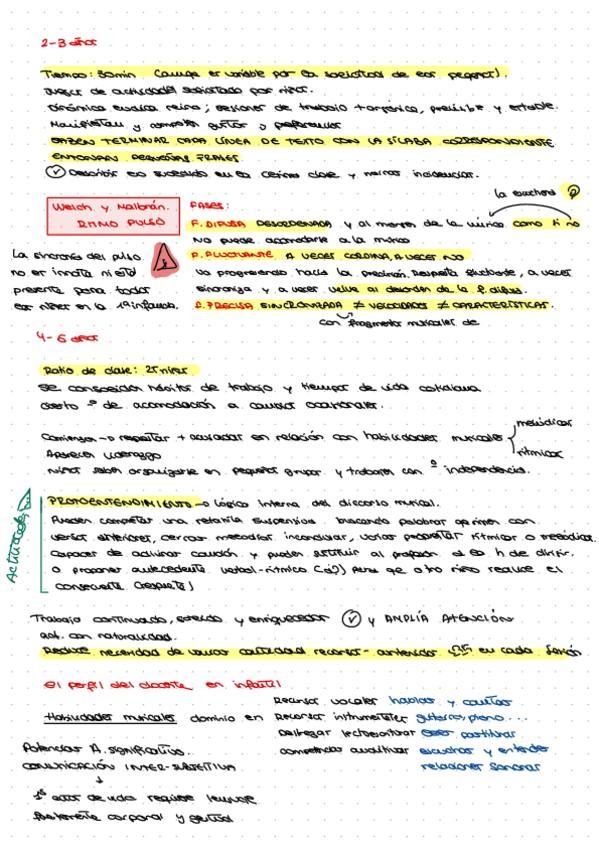 2-3 años
Tiempo: 30min (aunque es variable por la solicitud de los peques).
de actividades solicitado por niños.
Dinámica; sesiones de trabajo + orgánica, predecible y estable.
Manifiestan y comparten gustos y preferencias
SABEN TERMINAR CADA LÍNEA DE TEXTO CON LA SÍLABA CORRESPONDIENTE
ENTONAN PEQUEÑAS FRASES
Describir lo sucedido en la última clase y nuevas incidencias.
la escucha
Welch y Malbrán.
RITMO PULSO
FASES:
F. DIFUSA DESORDENADA y al margen de la música como si no
no puede acomodarse a la música
F. FLUCTUANTE A VECES COORDINA, A VECES NO
va progresando hacia la precisión. Respuesta fluctuante, a veces
sincroniza y a veces vuelve al desorden de la f. difusa.
F. PRECISA SINCRONIZADA ≠ VELOCIDADES ≠ CARACTERÍSTICAS.
con fragmentos musicales de
La sincronía del pulso
no es innata ni está
presente para todos
los niños en la 1ª infancia.
4-6 años
Ratio de clase: 25 niños
Se consolidan hábitos de trabajo y tiempos de vida cotidiana
cierto º de acomodación a cambios ocasionales.
Comienzan → respuestas + acusadas en relación con habilidades musicales melódicas
rítmicas
Aparecen liderazgo
Niños saben organizarse en pequeños grupos y trabajan con º independencia.
Actividades
PROTOENTENDIMIENTO → Lógica interna del discurso musical.
Pueden completar una retahíla suspensiva buscando palabras q rimen con
versos anteriores, cerrar melodías inconclusas, variar propuestas rítmicas o melódicas.
capaces de adivinar canción y pueden sustituir al profesor a la h de dirigir.
o proponer antecedente verbal-rítmico (a?) para que otro niño realice el
consecuente (respuesta)
Trabajo continuado, seguido y enriquecedor y AMPLÍA ATENCIÓN
act. con naturalidad.
Reduce necesidad de variar cantidad recursos - contenidos en cada sesión
El perfil del docente en infantil
Habilidades musicales dominio en
Recursos vocales hablar y cantar
Recursos instrumentales guitarra, piano...
lectoescritura leer partituras
competencia auditiva escuchar y entender
relaciones sonoras
Potenciar A. significativo.
COMUNICACIÓN INTER-SUBJETIVA
↓
1º años de vida requiere lenguaje
corporal y gestual